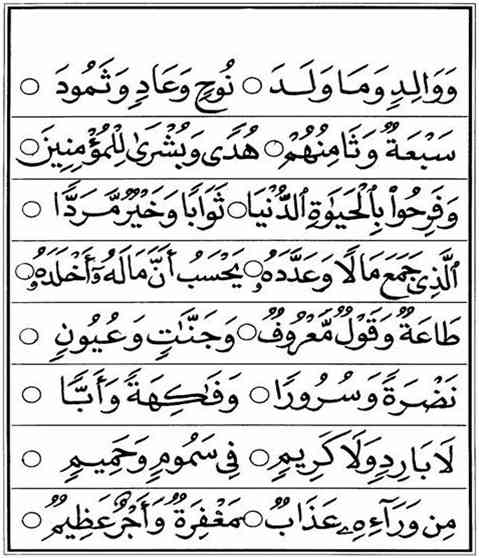 وَوَالِدٍ وَمَا وَلَدَ ○ نُوحٍ وَعَادٍ وَثَمُودَ ○
سَبْعَةٌ وَثَامِنُهُمْ ○ هُدًى وَبُشْرَىٰ لِلْمُؤْمِنِينَ ○
وَفَرِحُوا۟ بِٱلْحَيَوٰةِ ٱلدُّنْيَا ○ ثَوَابًا وَخَيْرٌ مَّرَدًّا ○
ٱلَّذِى جَمَعَ مَالًا وَعَدَّدَهُۥ ○ يَحْسَبُ أَنَّ مَالَهُۥٓ أَخْلَدَهُۥ ○
طَاعَةٌ وَقَوْلٌ مَّعْرُوفٌ ○ وَجَنَّـٰتٍ وَعُيُونٍ ○
نَضْرَةً وَسُرُورًا ○ وَفَـٰكِهَةً وَأَبًّا ○
لَا بَارِدٍ وَلَا كَرِيمٍ ○ فِى سَمُومٍ وَحَمِيمٍ ○
مِن وَرَآءِهِۦ عَذَابٌ ○ مَغْفِرَةٌ وَأَجْرٌ عَظِيمٌ ○